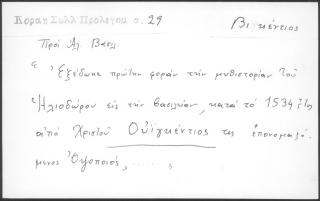 Κοραη Συλλ Προλεγομ σ. 29
Βιγκέντιος
Πρὸς Ἀλ. Βασιλ.
“ Ἐξέδωκε πρώτην φορὰν τὴν μυθιστορίαν τοῦ
Ἡλιοδώρου εἰς τὴν Βασιλείαν, κατὰ τὸ 1534 ἔτος
ἀπὸ Χριστοῦ Οὐϊγκέντιος τις ἐπονομαζό
μενος Ὀψοποιός, ......,